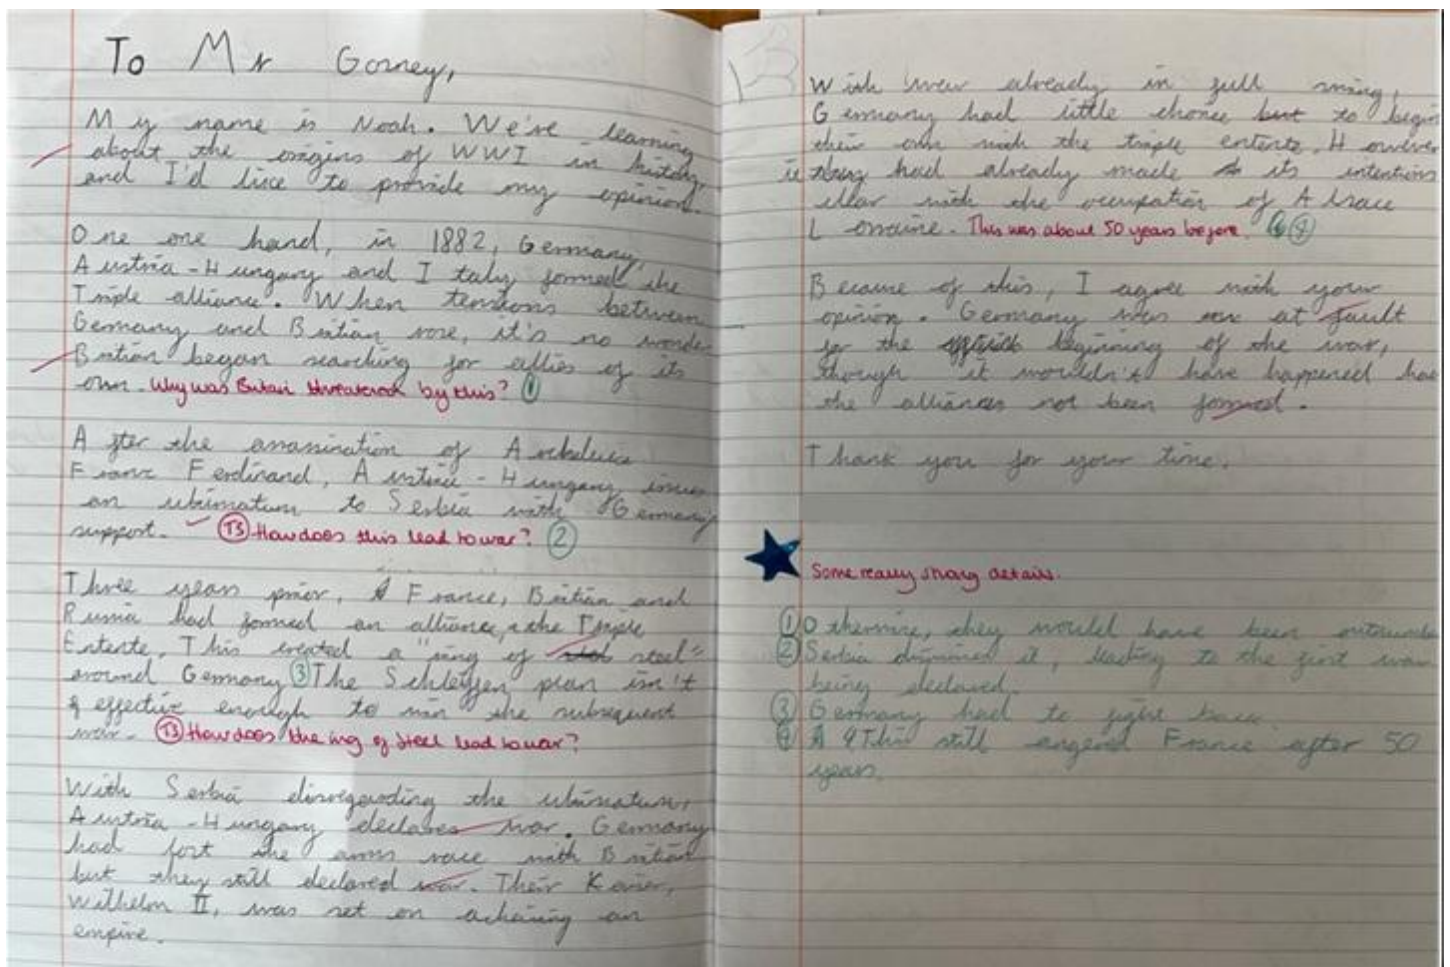 To Mr Gorney,
My name is Noah. We're learning
about the origins of WWI in history,
and I'd like to provide my opinion.
One one hand, in 1882, Germany,
Austria-Hungary and Italy formed the
Triple alliance. When tensions between
Germany and Britian rose, it's no wonder
Britian began searching for allies of its
own. Why was Britain threatened by this? 1
After the assasination of Archduke
Franz Ferdinand, Austria-Hungary issues
an ultimatum to Serbia with Germany's
support. T3 How does this lead to war? 2
Three years prior, France, Britian and
Russia had formed an alliance, the Triple
Entente, This created a "ring of steel"
around Germany 3 The Schleffen plan isn't
effective enough to win the subsequent
war. T3 How does the ring of steel lead to war?
With Serbia disregarding the ultimatum,
Austria-Hungary declares war. Germany
had lost the arms race with Britian
but they still declared war. Their Kaiser,
Wilhelm II, was set on achieving an
empire.
13
With war already in full swing,
Germany had little choice but to begin
their own with the triple entente. However
it had already made its intentions
clear with the occupation of Alsace
Lorraine. This was about 50 years before. 4
Because of this, I agree with your
opinion. Germany was at fault
for the beginning of the war,
though it wouldn't have happened had
the alliances not been formed.
Thank you for your time.
Some really strong details.
1 Otherwise, they would have been
2 Serbia dismissed it, leading to the first war
being declared.
3 Germany had to fight back.
4 This still angered France after 50
years.